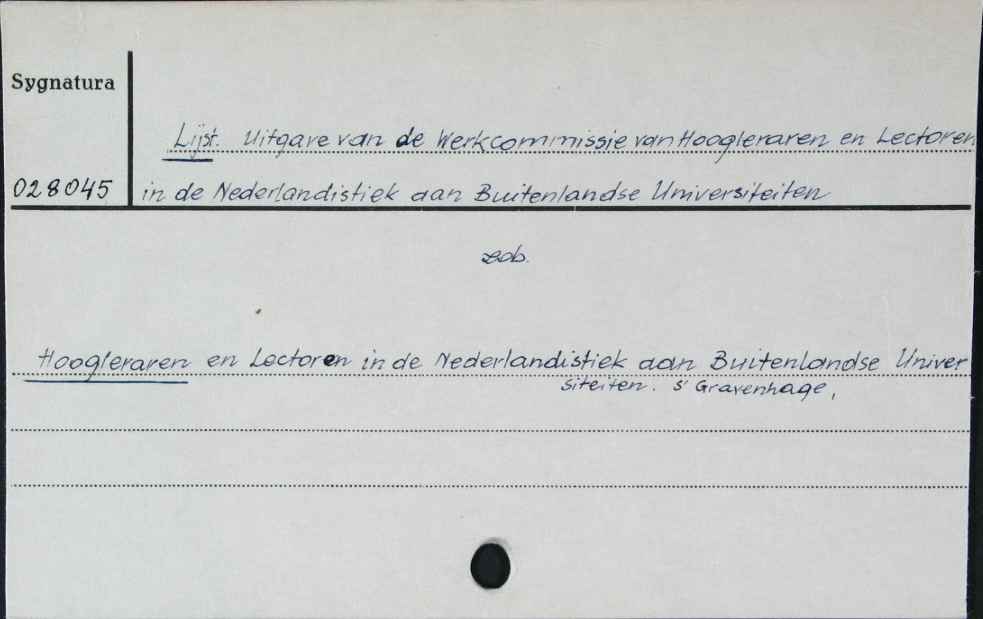 Sygnatura
Lijst. Uitgave van de Werkcommissie van Hoogleraren en Lectoren
028045
in de Nederlandistiek aan Buitenlandse Universiteiten
zob.
Hoogleraren en Lectoren in de Nederlandistiek aan Buitenlandse Univer
siteiten. s' Gravenhage,